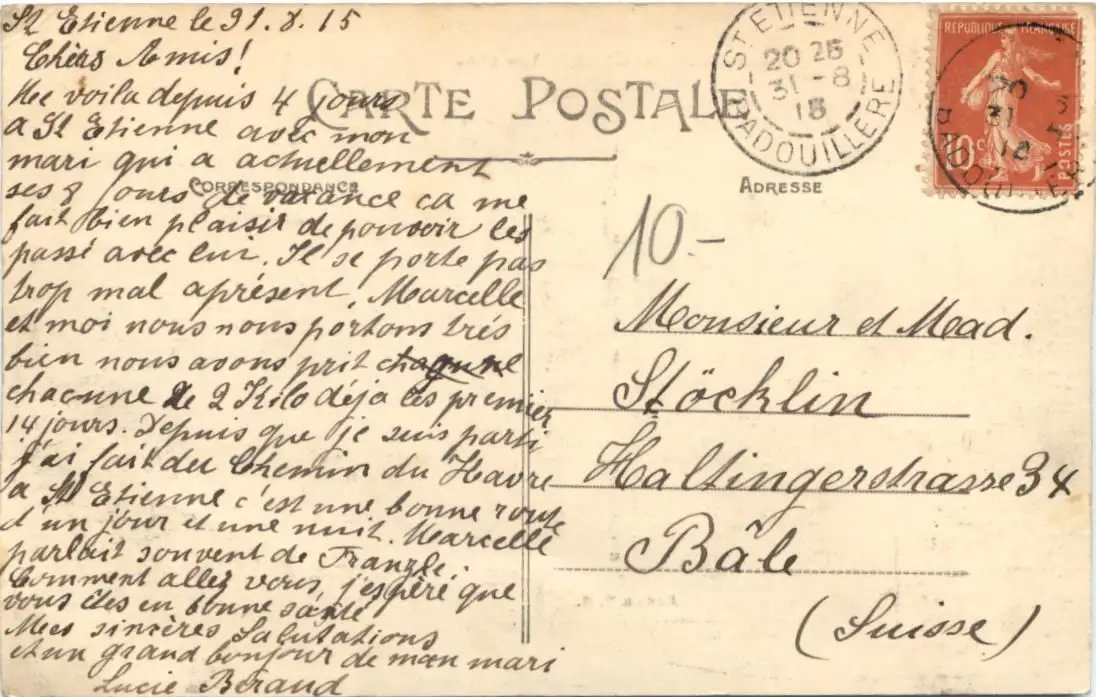 St Etienne le 31.8.15
Chèrs Amis!
Me voila depuis 4 jours
a St Etienne avec mon
mari qui a actuellement
ses 8 jours de vacance ca me
fait bien plaisir de pouvoir les
passé avec lui. Il se porte pas
trop mal aprésent. Marcelle
et moi nous nous portons trés
bien nous avons prit chaqune
chacune de 2 Kilo déja les premier
14 jours. Depuis que je suis parti
j'ai fait du Chemin du Havre
a St Etienne c'est une bonne route
d'un jour et une nuit. Marcelle
parlait souvent de Franzle.
Comment allez vous, j'espéré que
vous êtes en bonne santé
Mes sincères Salutations
et un grand bonjour de mon mari
Lucie Beraud
CARTE POSTALE
CORRESPONDANCE
ADRESSE
ST ETIENNE
20 25
31 - 8
15
BADOUILLERE
REPUBLIQUE FRANÇAISE
10c
POSTES
31
15
BADOUILLERE
10-
Monsieur et Mad.
Stöcklin
Haltingerstrasse 34
Bâle
(Suisse)